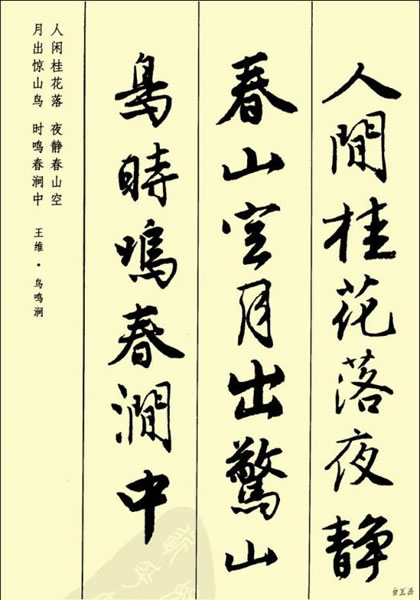 人閒桂花落夜静
春山空月出驚山
鳥時鳴春澗中
人闲桂花落 夜静春山空
月出惊山鸟 时鸣春涧中 王维·鸟鸣涧